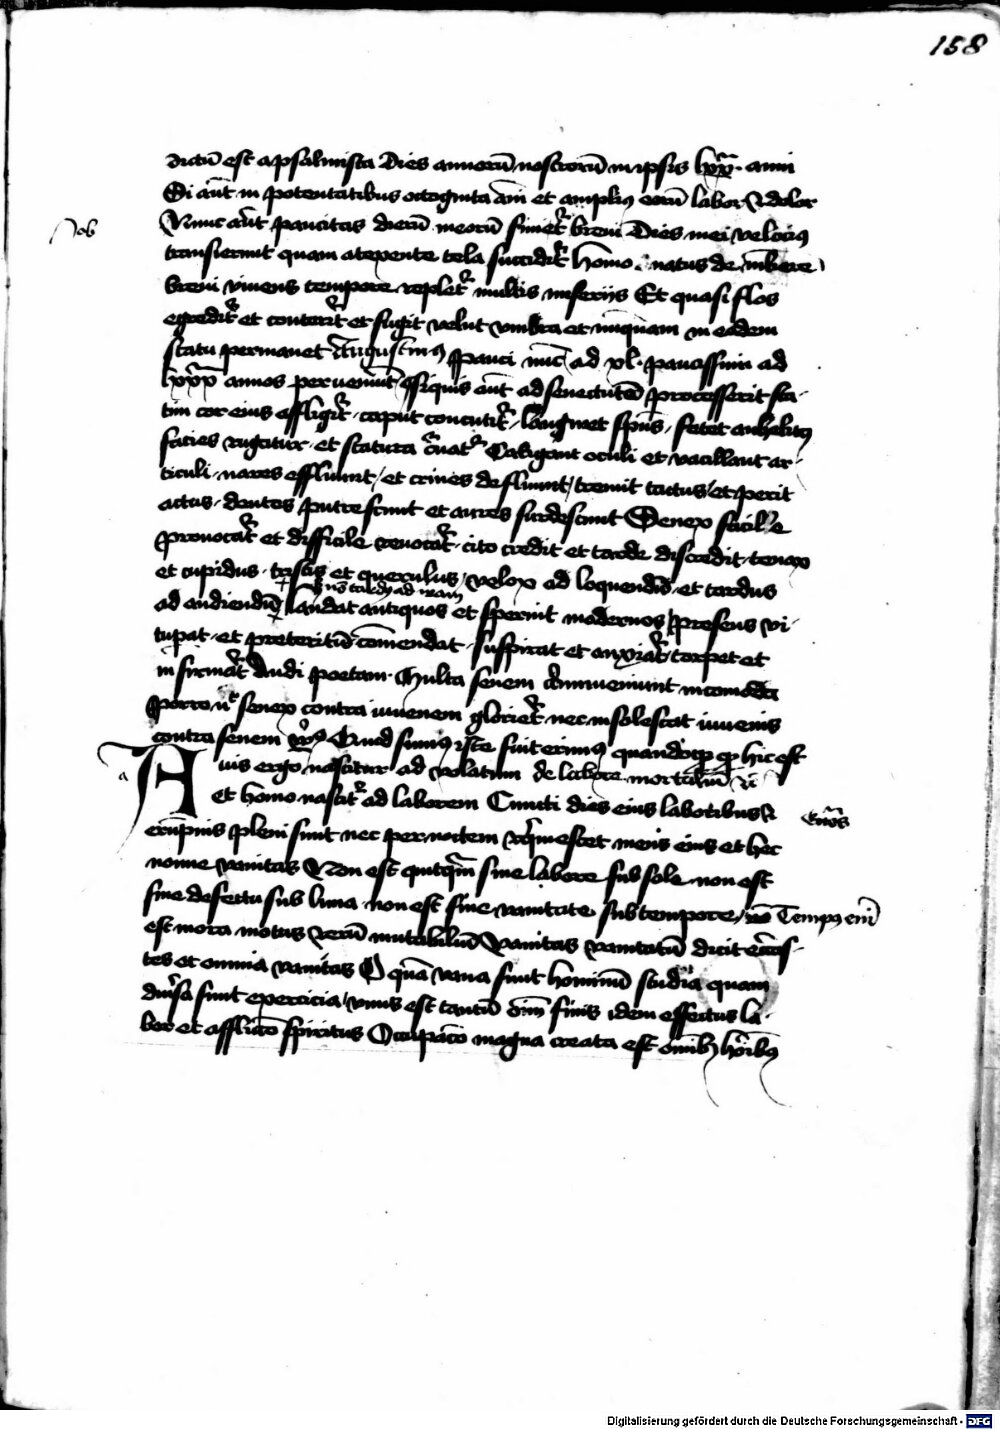 158
dictū est a psalmista Dies annorū nostrorū in ipsis lxx. anni
Si aūt in potentatibus octoginta añi et ampliꝰ eorū labor & dolor
Job
Nunc aūt paucitas dierū meorū finietr̄ breui Dies mei velociꝰ
transierunt quam a texente tela succiditr̄ Homo natus de mliere
breui viuens tempore repletr̄ multis miserijs Et quasi flos
egreditr̄ et conteritr̄ et fugit velut vmbra et nūquam in eodem
statu permanet Augustinꝰ pauci nūc ad xl. paucissimi ad
annos perueniūt Siquis aūt ad senectutē processerit sta-
tim cor eius affligitr̄ . caput concutitr̄ . languet spūs . fetet anhelitꝰ
facies rugatur . et statura c̄uatr̄ Caligant oculi et vacillant ar-
ticuli . nares effluunt / et crines defluunt / tremit tactus / et perit
actus . dentes putrescunt et aures surdescunt Senex facile
prouocatr̄ et difficile reuocatr̄ . cito credit et tarde discredit . tenax
et cupidus . tristis et querulus / velox ad loquendū . et tardus
s; nō tardꝰ ad iram
ad audiendū / laudat antiquos et spernit modernos / presens vi-
tupat . et preteritū cōmendat . suspirat et anxiatr̄ . torpet et
infirmatr̄ Audi poetam . Multa senem c̄ueniunt incomoda
Porro nͨ senex contra iuuenem glorietr̄ nec insolescat iuuenis
contra senem Quod sumꝰ iste fuit erimꝰ quandoqȝ qꝫ hic est
a
Auis ergo nascitur ad volatum de labore mortaliū
et homo nascitr̄ ad laborem Cuncti dies eius laboribus &
erūpnis pleni sunt nec per noctem reqͥescet mens eius et hec
nonne vanitas Non est quitqͣm sine labore sub sole . non est
sine defectu sub luna . non est sine vanitate sub tempore / Tempꝰ enī
est mora motus rerū mutabiliū Vanitas vanitatū dicit ecc̄ias-
tes et omnia vanitas O quā vana sunt hominū studia quam
diūsa sunt exercicia / vnus est tantū oīm finis idem effectus la-
bor et afflictō spiritus Occupatō magna creata est omībȝ hoībꝰ